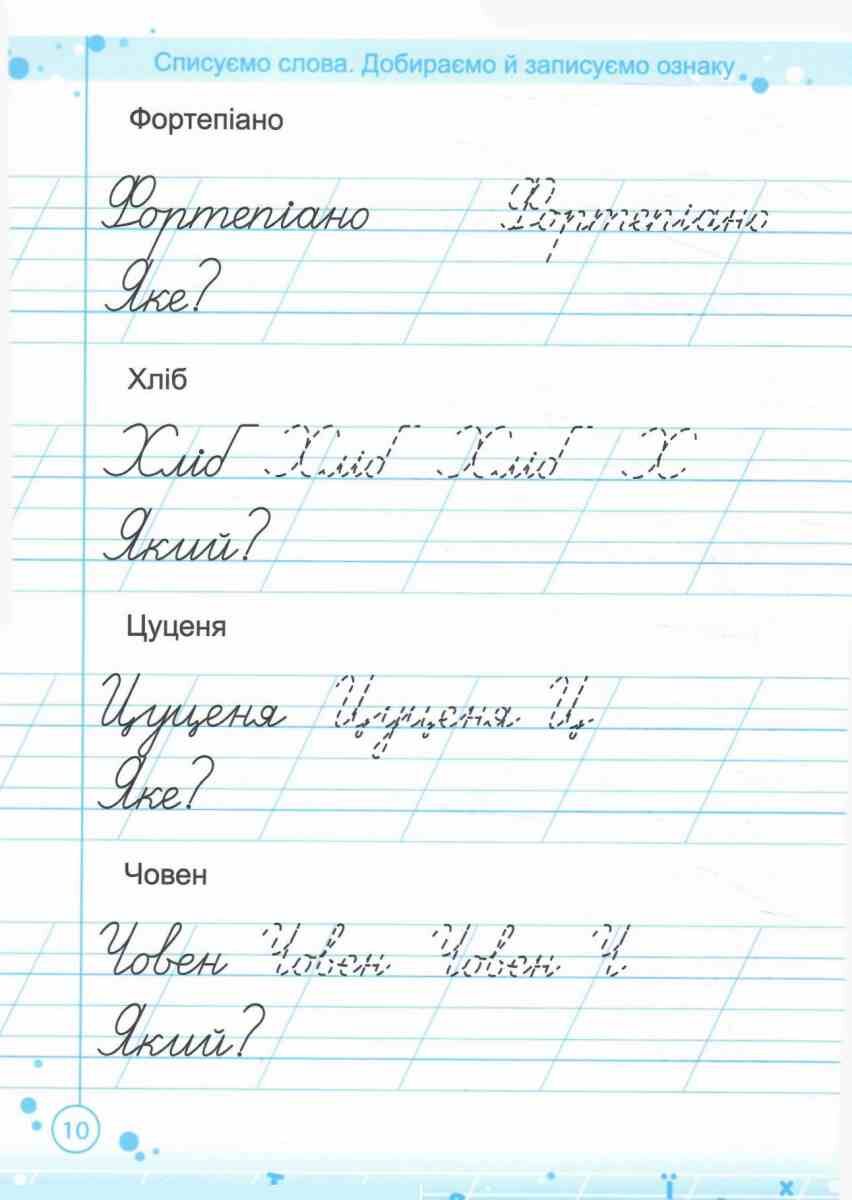 Списуємо слова. Добираємо й записуємо ознаку
Фортепіано
Фортепіано Фортепіано
Яке?
Хліб
Хліб Хліб Хліб Х
Який?
Цуценя
Цуценя Цуценя Ц
Яке?
Човен
Човен Човен Човен Ч
Який?
10
т ї х